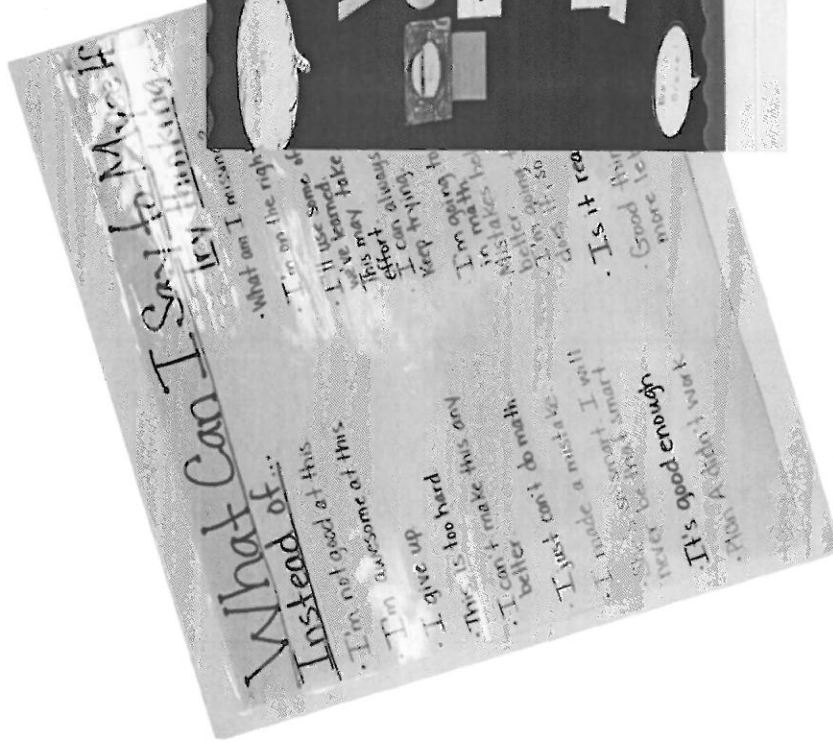 What Can I Say to Myself
Instead of...
· I'm not good at this
· I'm awesome at this
· I give up
· This is too hard
· I can't make this any
better
· I just can't do math
· I made a mistake
· She's so smart. I will
never be that smart
· It's good enough
· Plan A didn't work
Try thinking
· What am I missing?
· I'm on the righ
· I'll use some of
we've learned.
This may take
effort
I can always
keep trying
I'm going to
in math
Mistakes he
better
· I'm going t
does it, so
· Is it rea
· Good thin
more let